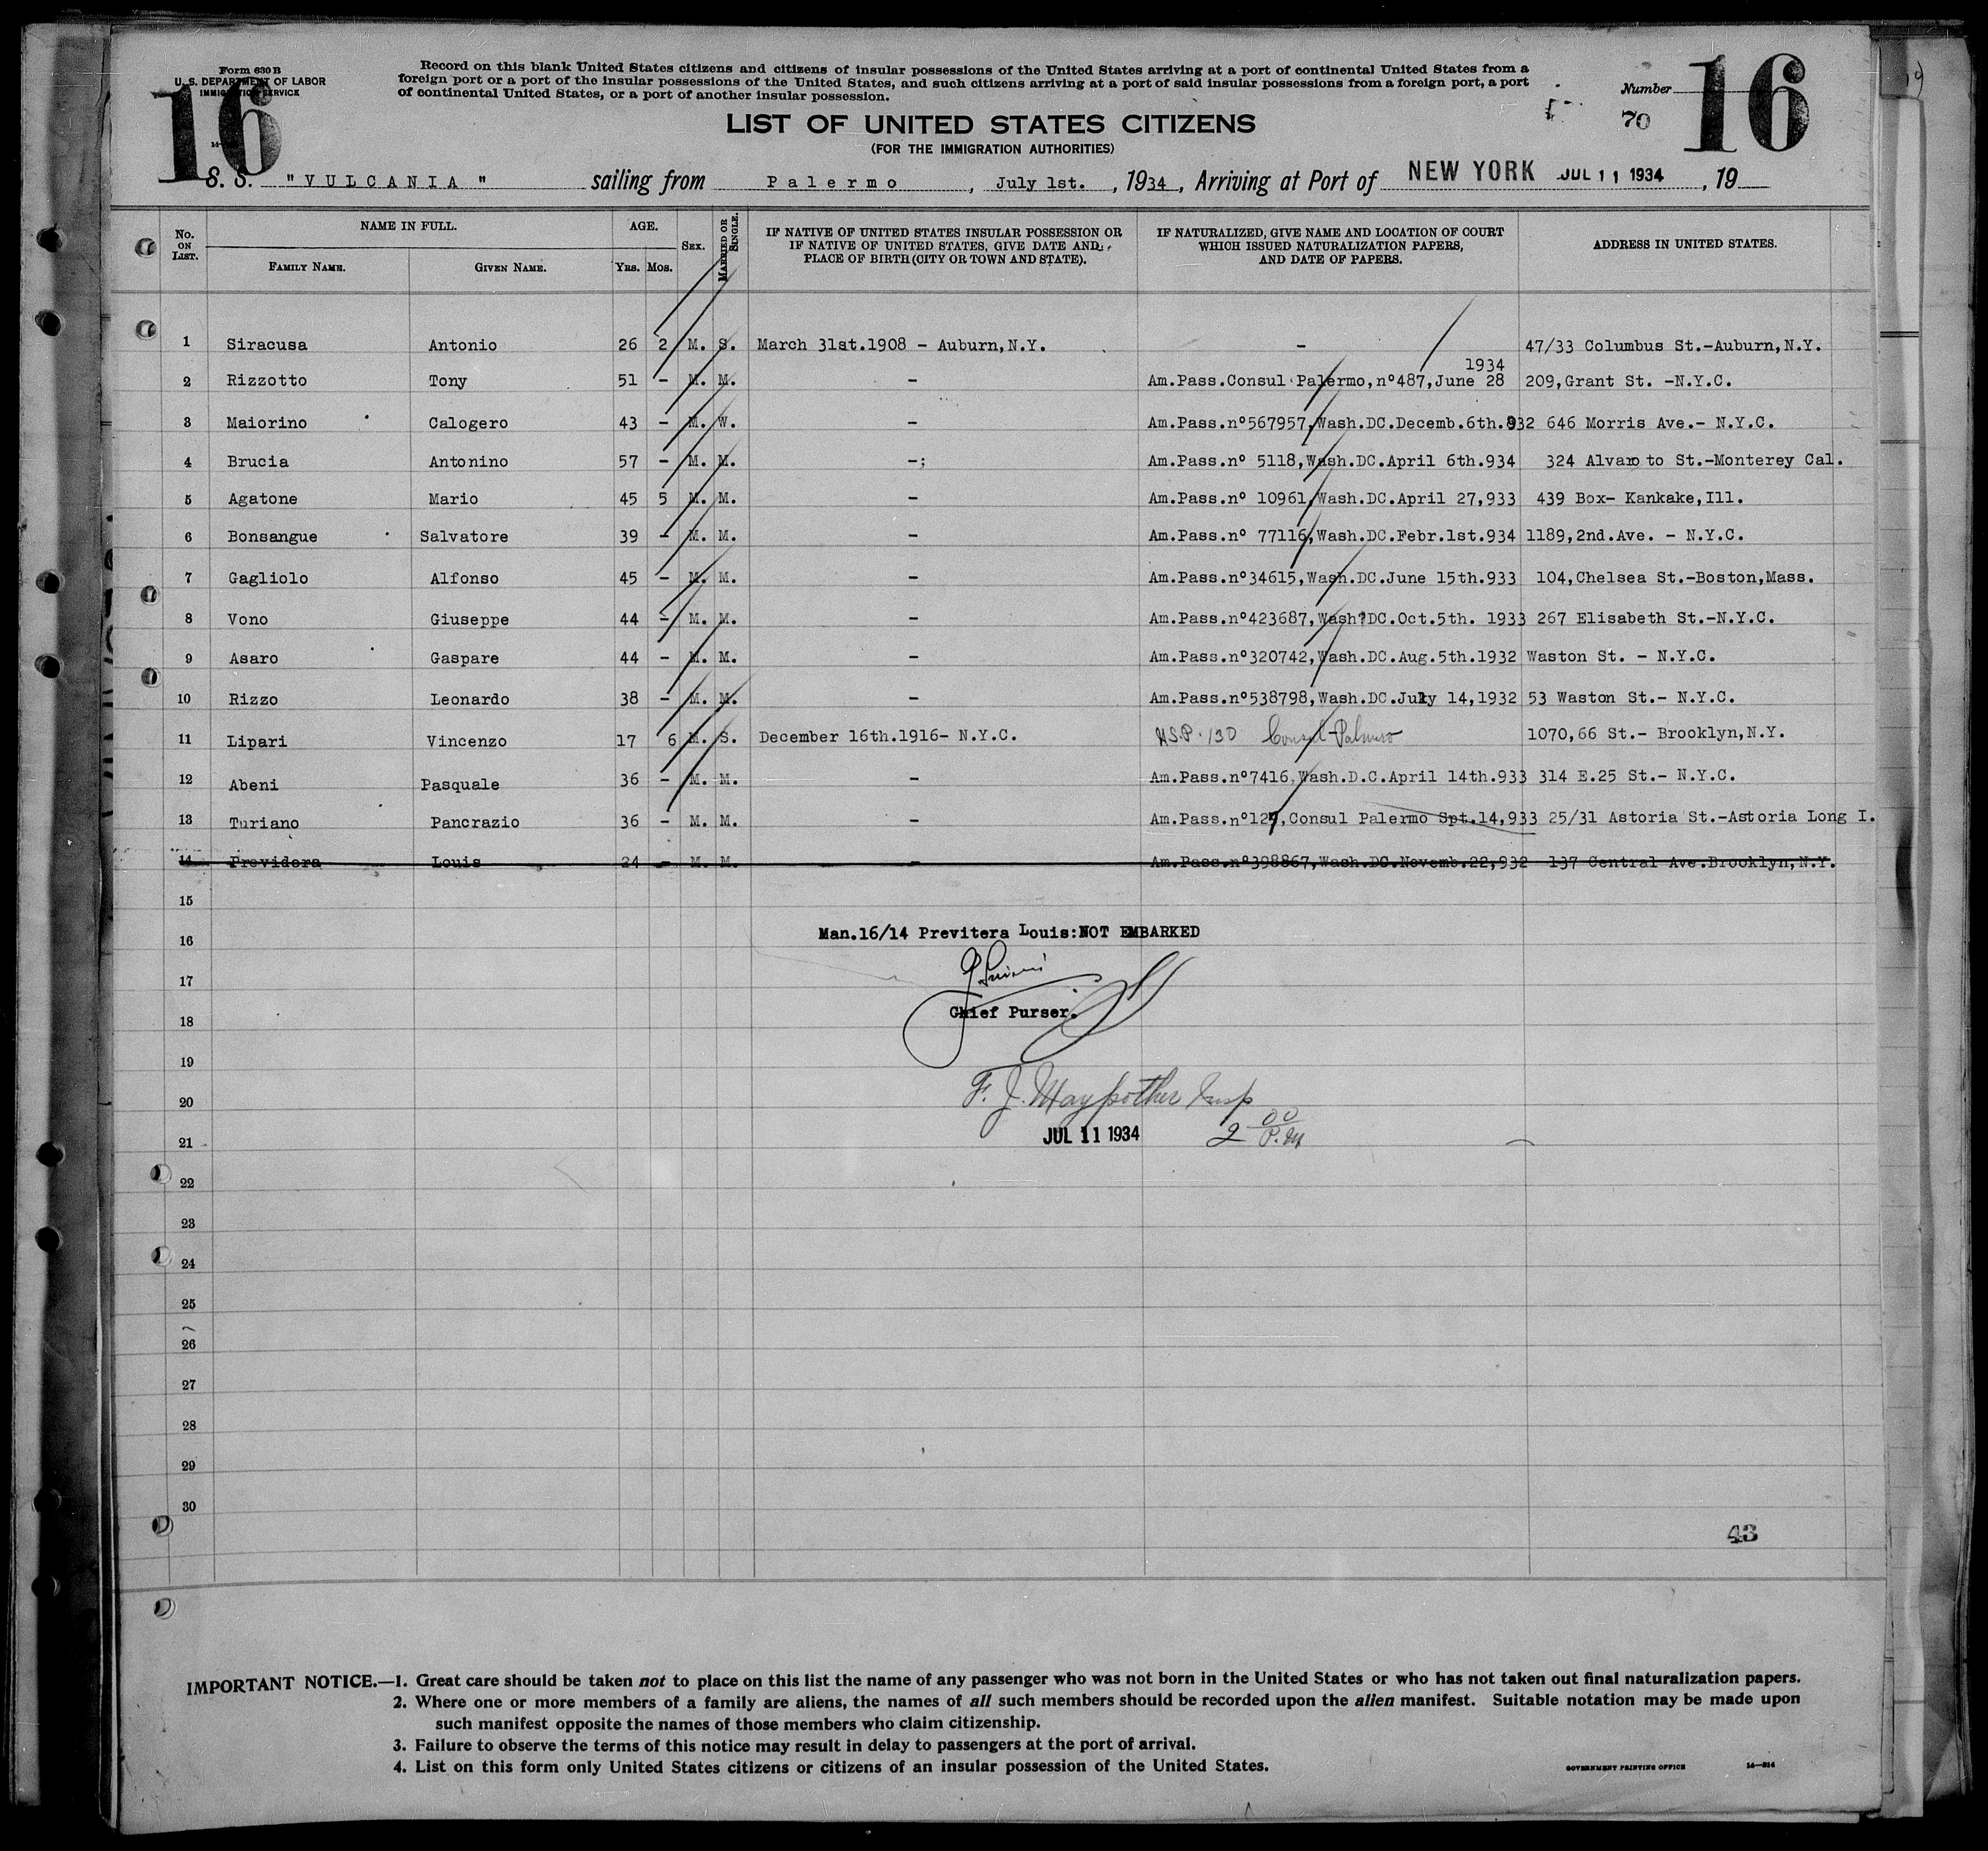 Form 630 B
U. S. DEPARTMENT OF LABOR
IMMIGRATION SERVICE
16
Record on this blank United States citizens and citizens of insular possessions of the United States arriving at a port of continental United States from a
foreign port or a port of the insular possessions of the United States, and such citizens arriving at a port of said insular possessions from a foreign port, a port
of continental United States, or a port of another insular possession.
Number
16
70
LIST OF UNITED STATES CITIZENS
(FOR THE IMMIGRATION AUTHORITIES)
S. S. "VULCANIA" sailing from Palermo, July 1st., 1934, Arriving at Port of NEW YORK JUL 11 1934, 19
No. ON LIST. NAME IN FULL. AGE. SEX. MARRIED OR SINGLE. IF NATIVE OF UNITED STATES INSULAR POSSESSION OR IF NATIVE OF UNITED STATES, GIVE DATE AND PLACE OF BIRTH (CITY OR TOWN AND STATE). IF NATURALIZED, GIVE NAME AND LOCATION OF COURT WHICH ISSUED NATURALIZATION PAPERS, AND DATE OF PAPERS. ADDRESS IN UNITED STATES.
FAMILY NAME. GIVEN NAME. YRS. MOS.
1 Siracusa Antonio 26 2 M. S. March 31st.1908 - Auburn,N.Y. - 47/33 Columbus St.-Auburn,N.Y.
1934
2 Rizzotto Tony 51 - M. M. - Am.Pass.Consul Palermo,nº487,June 28 209,Grant St. -N.Y.C.
3 Maiorino Calogero 43 - M. W. - Am.Pass.nº567957,Wash.DC.Decemb.6th.932 646 Morris Ave.- N.Y.C.
4 Brucia Antonino 57 - M. M. -; Am.Pass.nº 5118,Wash.DC.April 6th.934 324 Alvaro to St.-Monterey Cal.
5 Agatone Mario 45 5 M. M. - Am.Pass.nº 10961,Wash.DC.April 27,933 439 Box- Kankake,Ill.
6 Bonsangue Salvatore 39 - M. M. - Am.Pass.nº 77116,Wash.DC.Febr.1st.934 1189,2nd.Ave. - N.Y.C.
7 Gagliolo Alfonso 45 - M. M. - Am.Pass.nº34615,Wash.DC.June 15th.933 104,Chelsea St.-Boston,Mass.
8 Vono Giuseppe 44 - M. M. - Am.Pass.nº423687,Wash?DC.Oct.5th. 1933 267 Elisabeth St.-N.Y.C.
9 Asaro Gaspare 44 - M. M. - Am.Pass.nº320742,Wash.DC.Aug.5th.1932 Waston St. - N.Y.C.
10 Rizzo Leonardo 38 - M. M. - Am.Pass.nº538798,Wash.DC.July 14,1932 53 Waston St.- N.Y.C.
11 Lipari Vincenzo 17 6 M. S. December 16th.1916- N.Y.C. U.S.P. 130 Consul Palermo 1070,66 St.- Brooklyn,N.Y.
12 Abeni Pasquale 36 - M. M. - Am.Pass.nº7416,Wash.D.C.April 14th.933 314 E.25 St.- N.Y.C.
13 Turiano Pancrazio 36 - M. M. - Am.Pass.nº127,Consul Palermo Spt.14,933 25/31 Astoria St.-Astoria Long I.
14 Previdera Louis 24 - M. M. - Am.Pass.nº398867,Wash.DC.Novemb.22,932 137 Central Ave.Brooklyn,N.Y.
15
16 Man.16/14 Previtera Louis:NOT EMBARKED
17
18 Chief Purser.
19
20 F. J. Maypother Insp
21 JUL 11 1934 2 00 P.M
22
23
24
25
26
27
28
29
30
43
IMPORTANT NOTICE.—1. Great care should be taken not to place on this list the name of any passenger who was not born in the United States or who has not taken out final naturalization papers.
2. Where one or more members of a family are aliens, the names of all such members should be recorded upon the alien manifest. Suitable notation may be made upon
such manifest opposite the names of those members who claim citizenship.
3. Failure to observe the terms of this notice may result in delay to passengers at the port of arrival.
4. List on this form only United States citizens or citizens of an insular possession of the United States.
GOVERNMENT PRINTING OFFICE 14—814